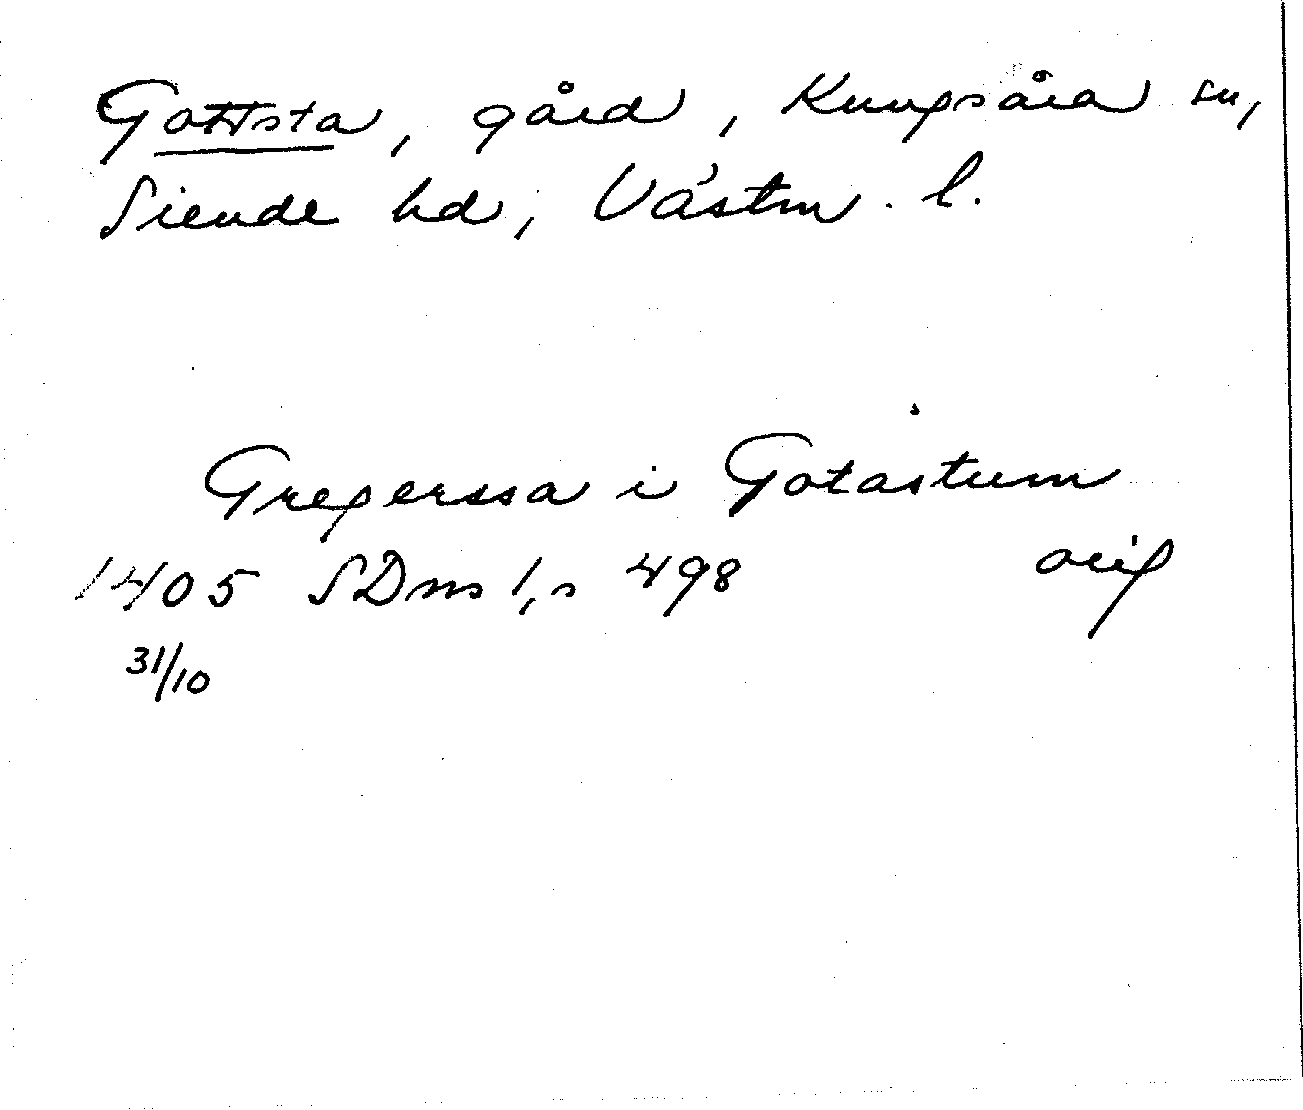 Gottsta, gård, Kungsåra sn,
Siende hd, Västm. l.
Gregerssa i Gotastum
1405 SDns 1, s 498 orig
31/10